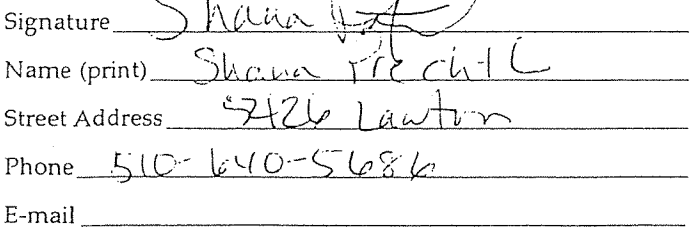 Signature Shana
Name (print) Shana
Street Address 5426 Lawton
Phone 510-640-5686
E-mail